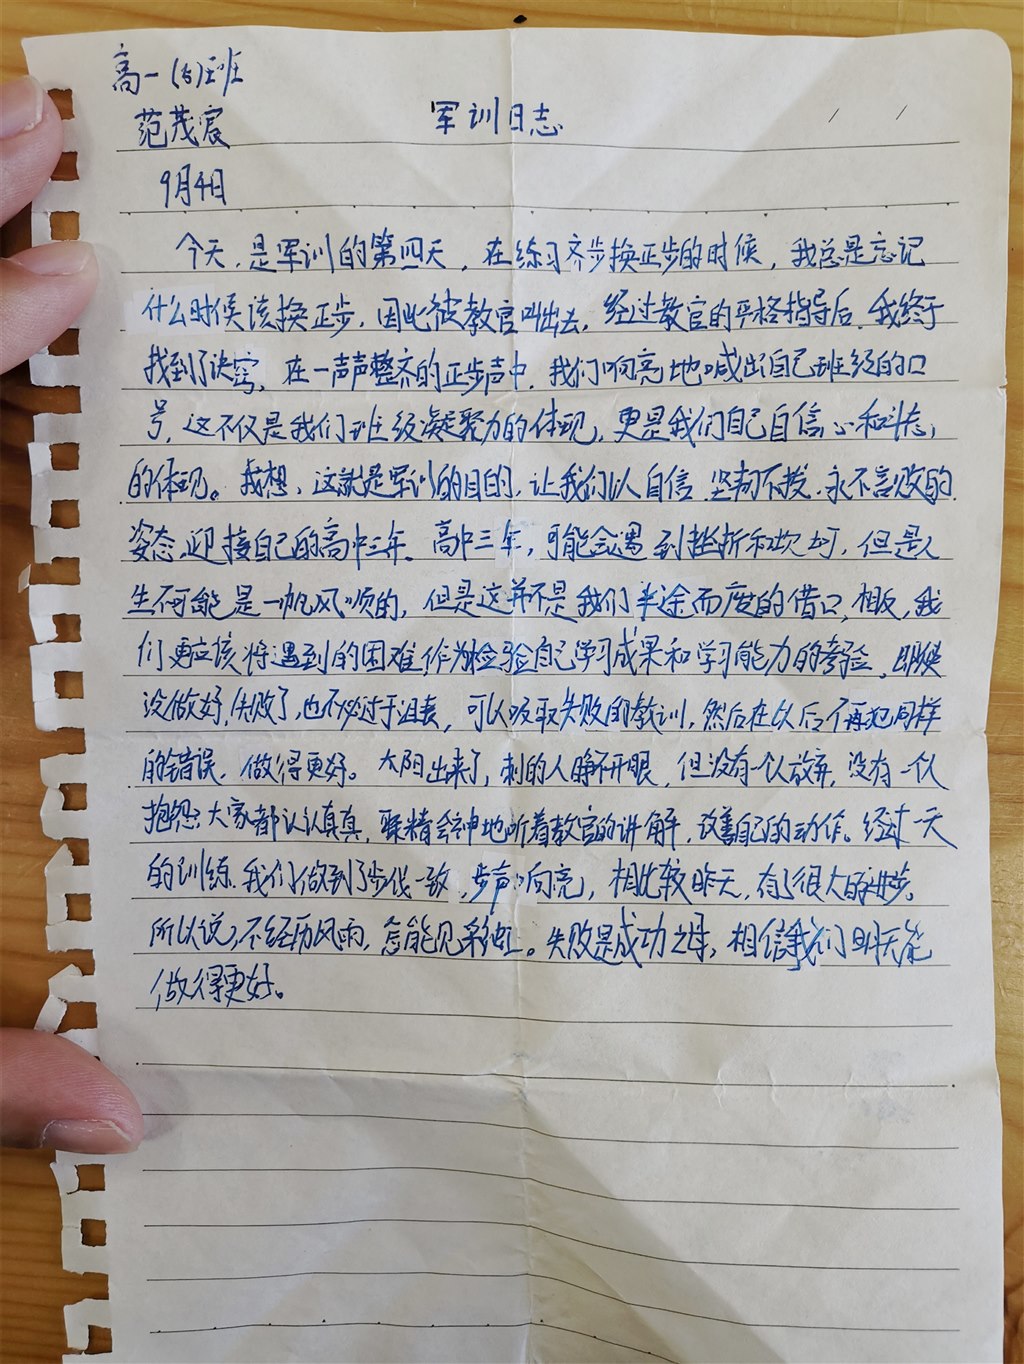 高一(5)班
范茂宸
军训日志
9月4日
今天,是军训的第四天,在练习齐步换正步的时候,我总是忘记
什么时候该换正步,因此被教官叫出去,经过教官的严格指导后,我终于
找到了诀窍,在一声声整齐的正步声中,我们响亮地喊出自己班级的口
号,这不仅是我们班级凝聚力的体现,更是我们自己自信心和斗志
的体现。我想,这就是军训的目的,让我们以自信,坚韧不拔,永不言败的
姿态,迎接自己的高中三年。高中三年,可能会遇到挫折和坎坷,但是人
生不可能是一帆风顺的,但是这并不是我们半途而废的借口,相反,我
们更应该将遇到的困难作为检验自己学习成果和学习能力的考验,即使
没做好,失败了,也不必过于沮丧,可以吸取失败的教训,然后在以后不再犯同样
的错误,做得更好。太阳出来了,刺的人睁不开眼,但没有一个人放弃,没有一个人
抱怨,大家都认认真真,聚精会神地听着教官的讲解,改善自己的动作。经过一天
的训练,我们做到了步伐一致,步声响亮,相比较昨天,有了很大的进步。
所以说,不经历风雨,怎能见彩虹。失败是成功之母,相信我们明天能
做得更好。